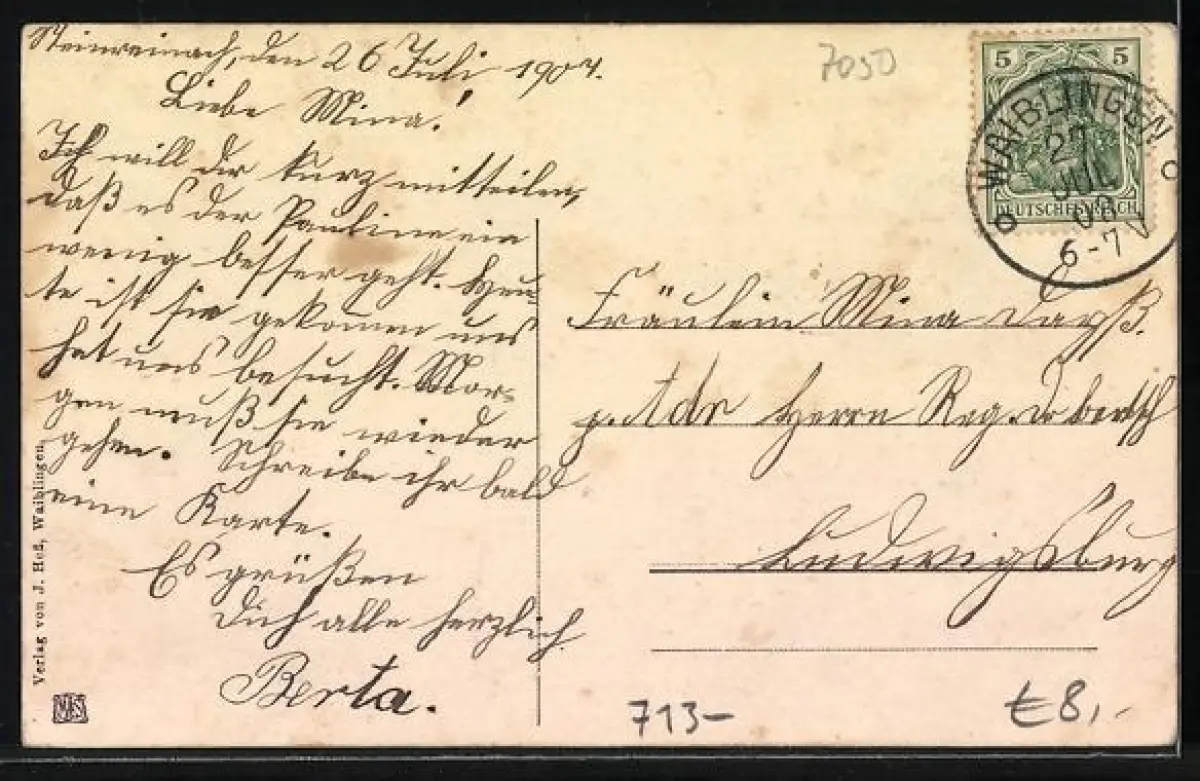 Steinreinach, den 26 Juli 1907.
Liebe Mina!
Ich will dir kurz mitteilen,
daß es der Pauline ein
wenig besser geht. Heu-
te ist sie gekommen uns
hat uns besucht. Mor-
gen muß sie wieder
gehen. Schreibe ihr bald
eine Karte.
Es grüßen
dich alle herzlich
Berta.
Verlag von J. Heß, Waiblingen.
7050
5 5
DEUTSCHES REICH
WAIBLINGEN
27
JUL
6-7 V
Fräulein Mina
p. Adr Herrn Reg. Dr
Ludwigsburg
713-
€ 8,-